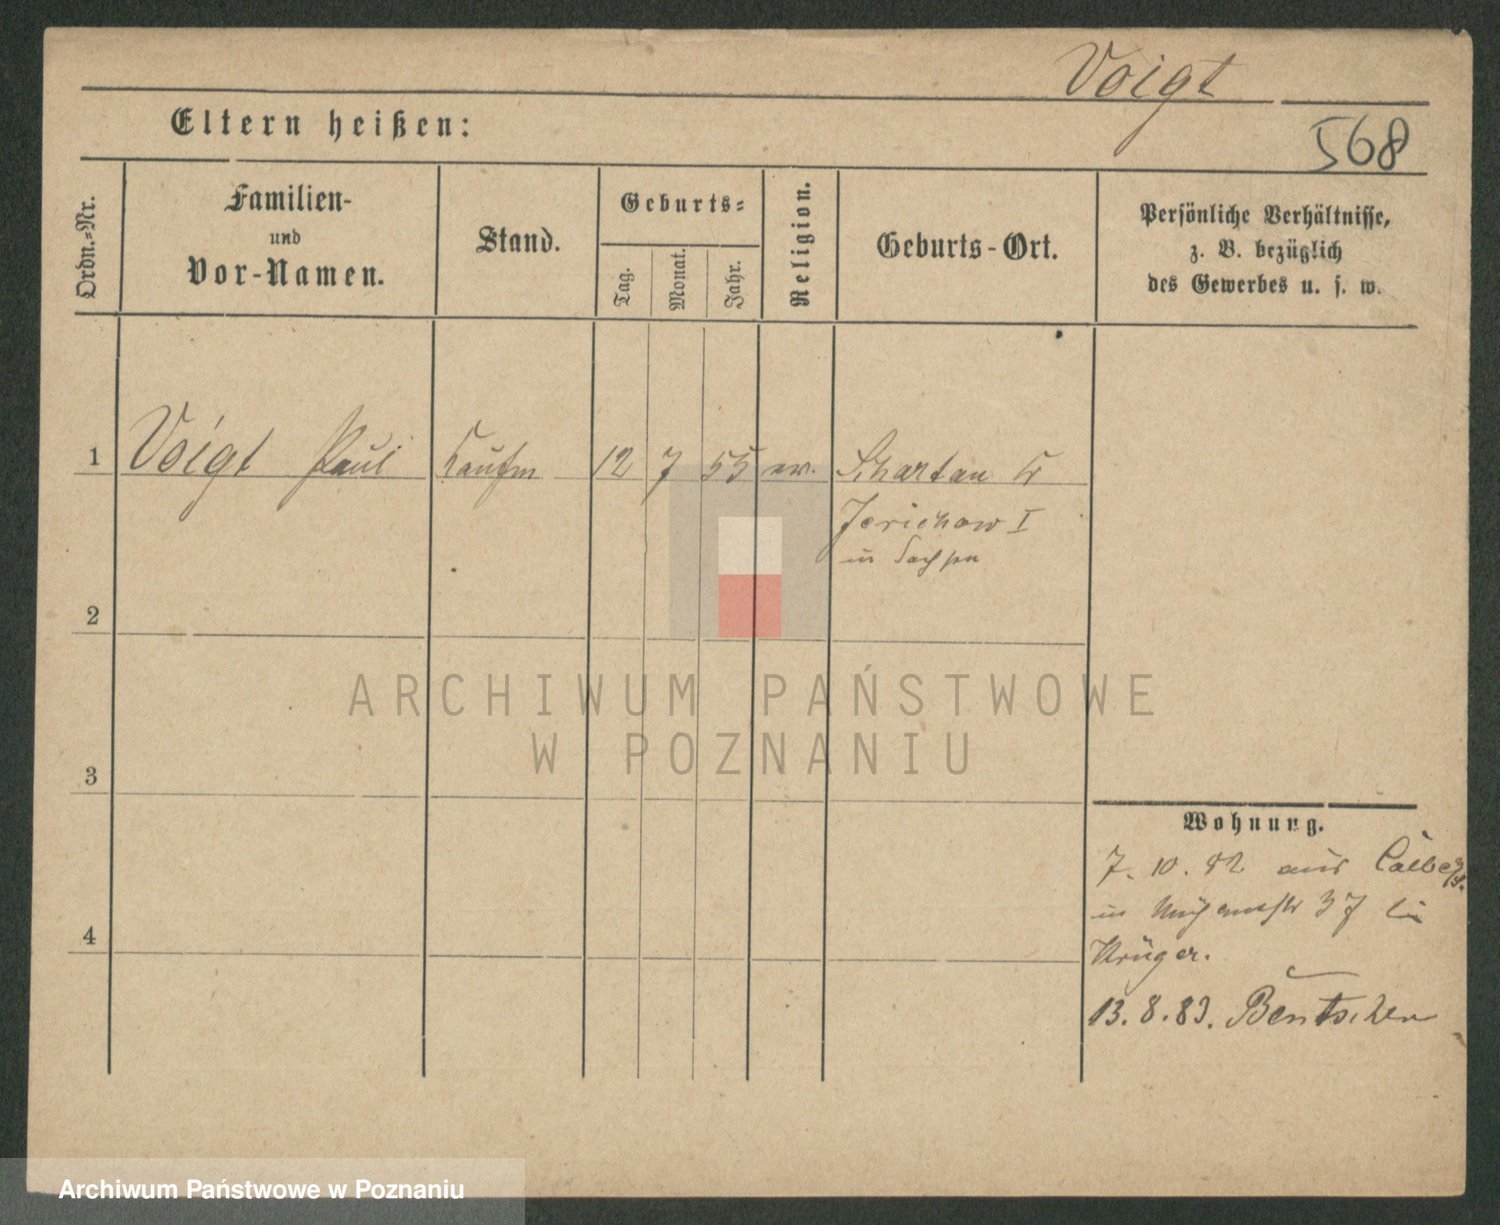 Voigt
568
Eltern heißen:
Ordn.-Nr.
Familien-
und
Vor-Namen.
Stand.
Geburts-
Tag.
Monat.
Jahr.
Religion.
Geburts-Ort.
Persönliche Verhältnisse,
z. B. bezüglich
des Gewerbes u. s. w.
1 Voigt Paul Kaufm 12 7 55 ev. Schartau Kr
Jerichow I
in Sachsen
2
3
4
Wohnung.
7. 10. 82 aus Calbe
in 37 bei
Krüger.
13. 8. 83. Bentschen
ARCHIWUM PAŃSTWOWE
W POZNANIU
Archiwum Państwowe w Poznaniu